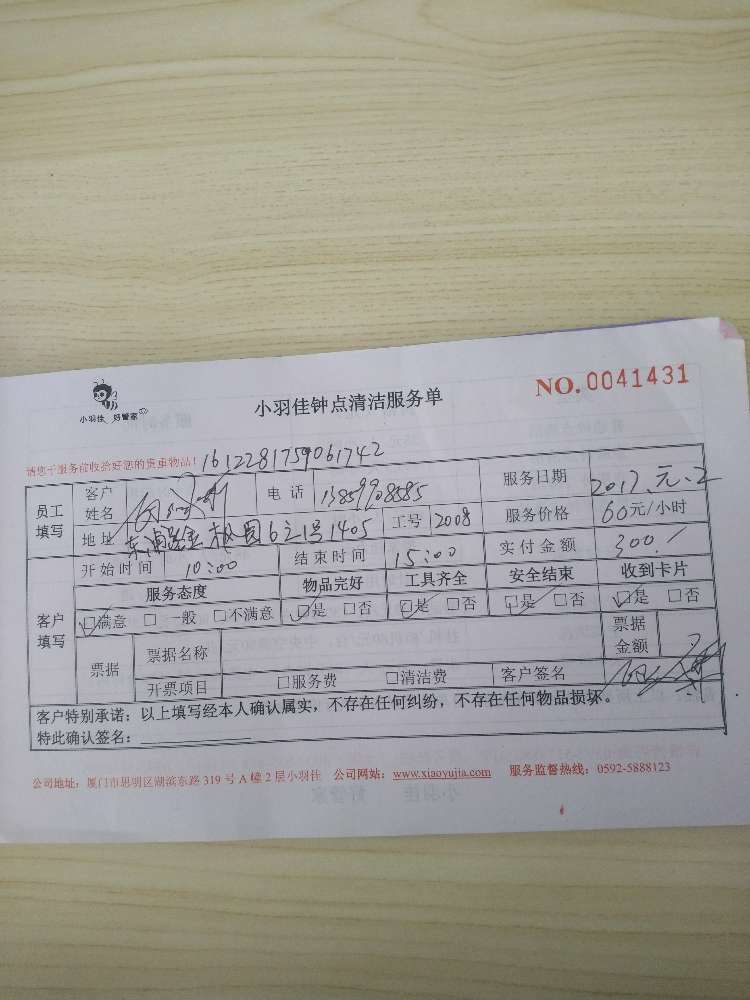 小羽佳 好管家
小羽佳钟点清洁服务单
NO.0041431
请您于服务前收拾好您的贵重物品！1612281759061742
员工填写 客户姓名 电话 13859908585 服务日期 2017.元.2
地址 东浦路金枫园6之1号1405 工号 2008 服务价格 60元/小时
客户填写 开始时间 10:00 结束时间 15:00 实付金额 300
服务态度 物品完好 工具齐全 安全结束 收到卡片
☑满意 □一般 □不满意 ☑是 □否 ☑是 □否 ☑是 □否 ☑是 □否
票据 票据名称 票据金额
开票项目 □服务费 □清洁费 客户签名
客户特别承诺：以上填写经本人确认属实，不存在任何纠纷，不存在任何物品损坏。
特此确认签名：
公司地址：厦门市思明区湖滨东路319号A幢2层小羽佳 公司网站：www.xiaoyujia.com 服务监督热线：0592-5888123